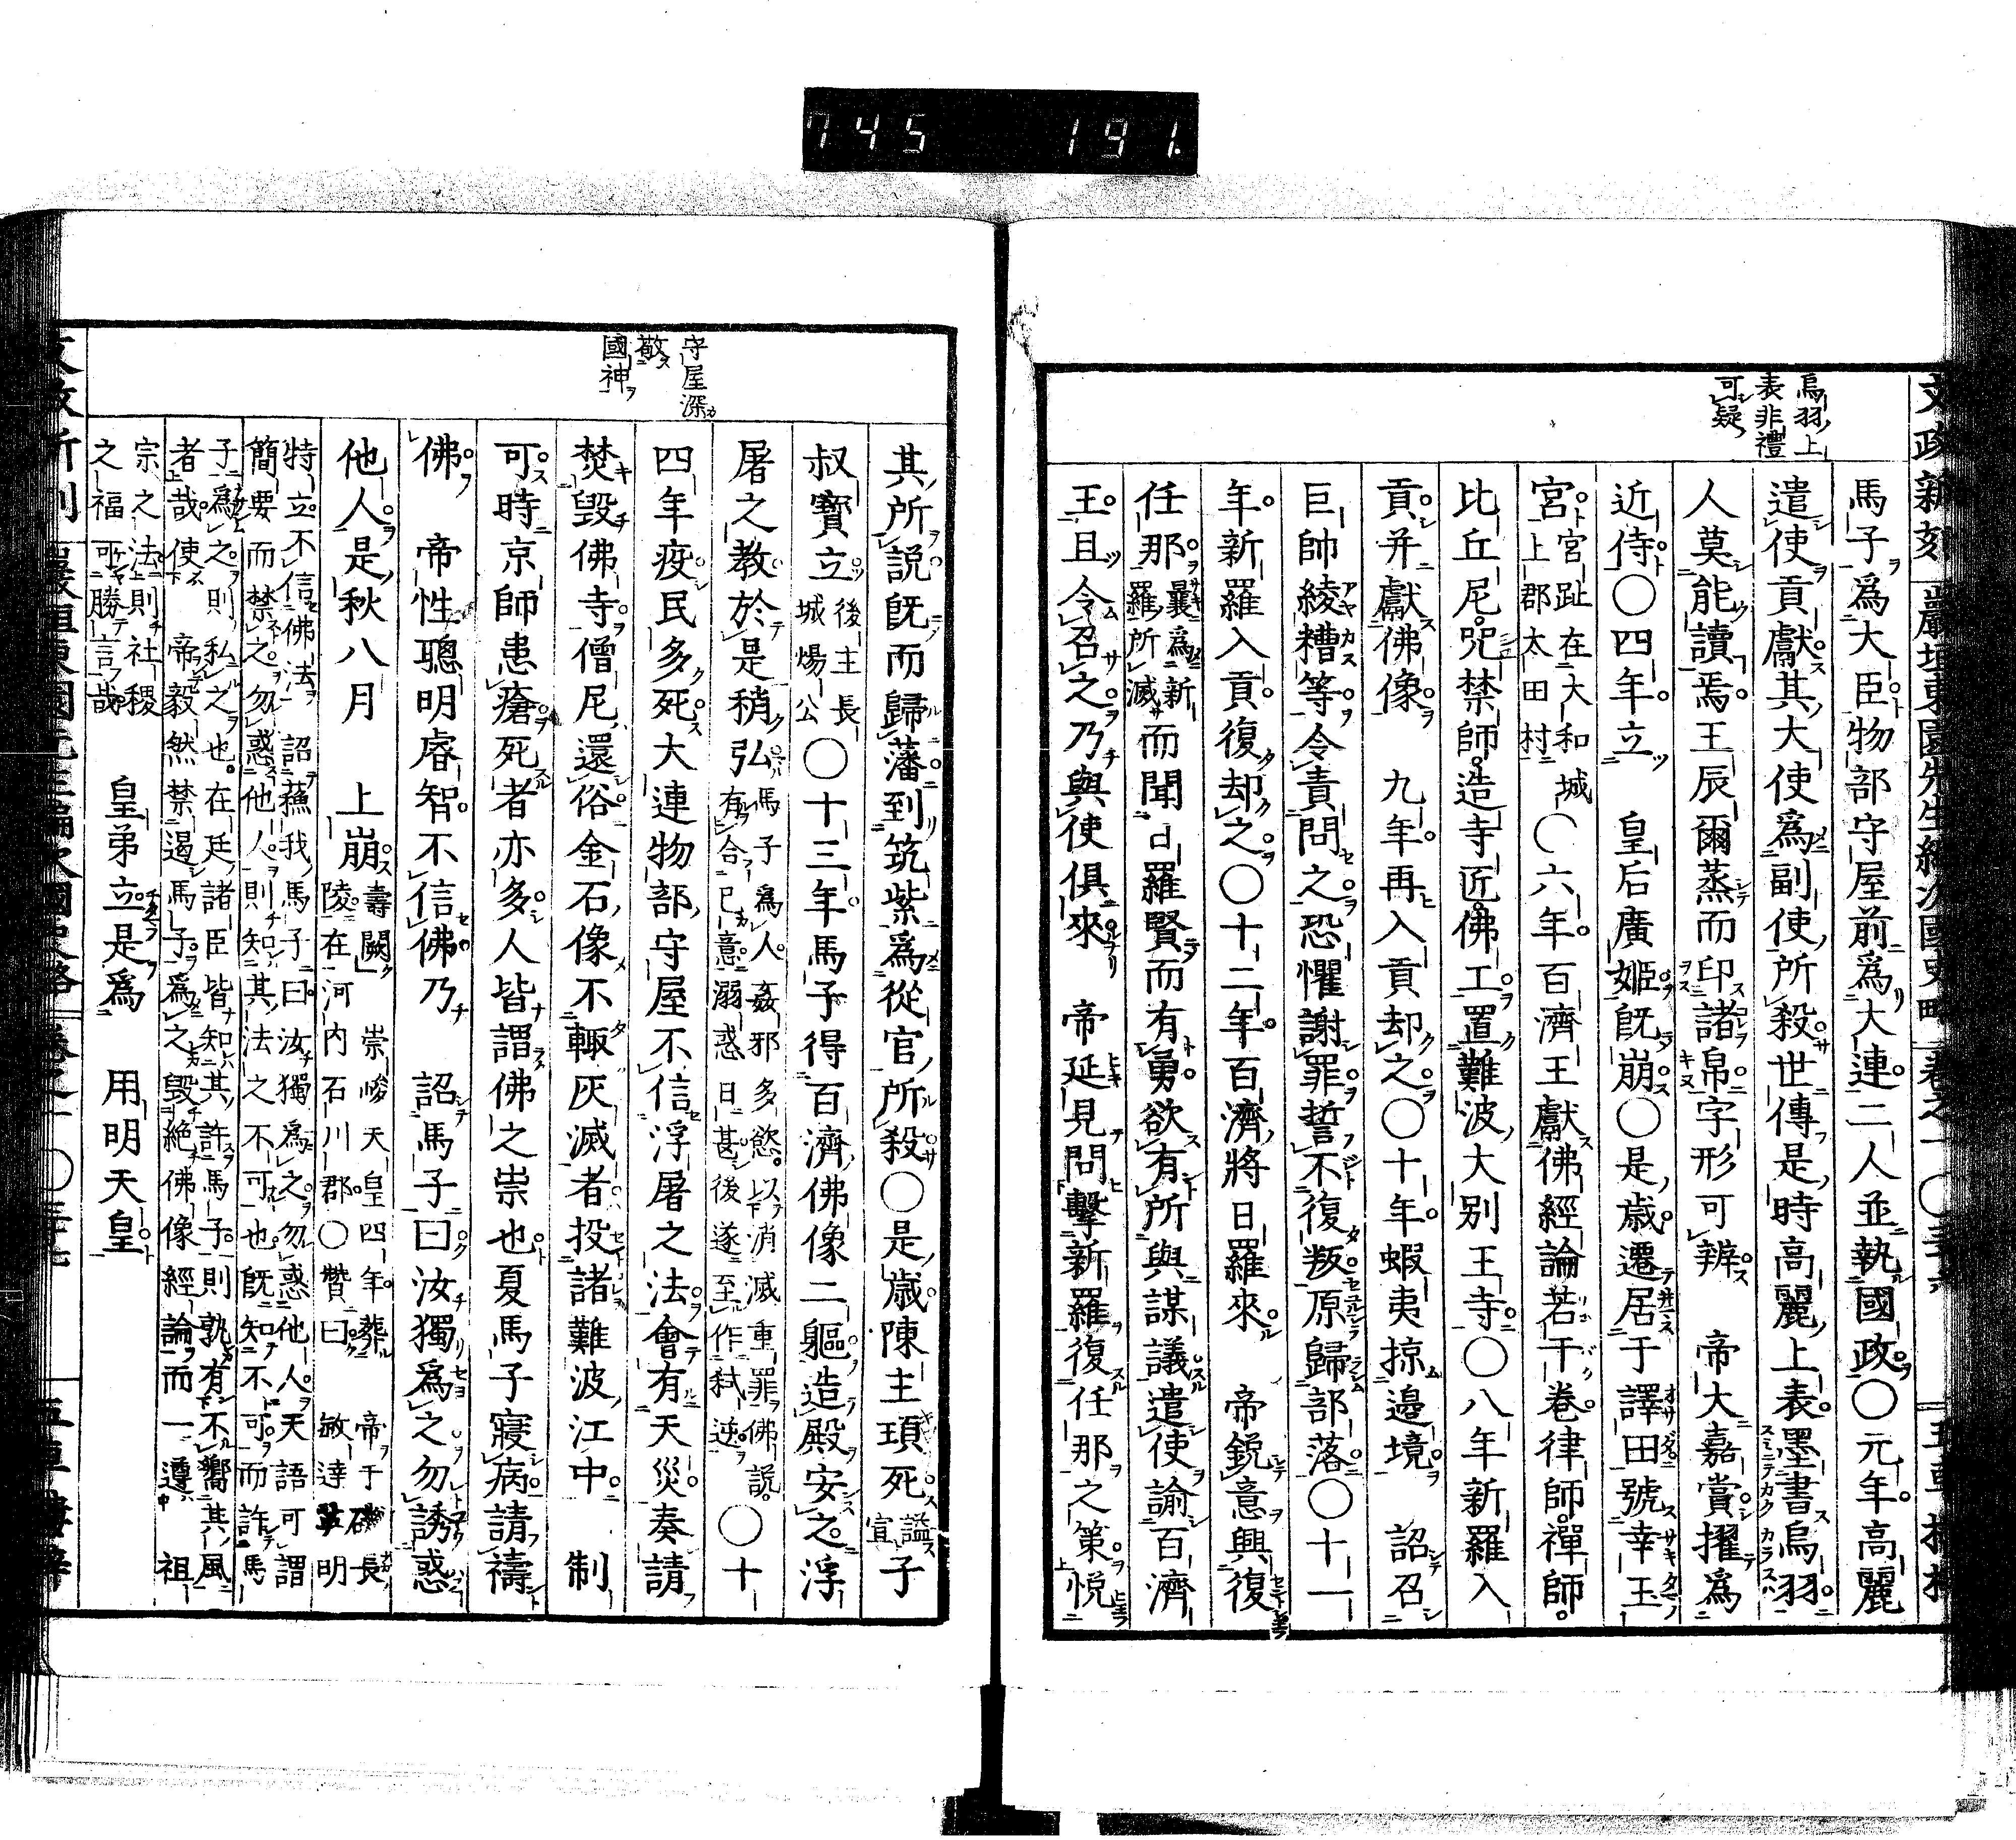 745 191
烏羽上
表非禮
可疑
馬子爲大臣物部守屋前爲大連二人並執國政〇元年高麗
遣使貢獻其大使爲副使所殺世傳是時高麗上表墨書烏羽
人莫能讀焉王辰爾蒸而印諸帛字形可辨 帝大嘉賞擢爲
近侍〇四年立 皇后廣姬既崩〇是歲遷居于譯田號幸玉
宮宮趾在大和城上郡太田村〇六年百濟王獻佛經論若干卷律師禪師
比丘尼咒禁師造寺匠佛工置難波大別王寺〇八年新羅入
貢并獻佛像 九年再入貢却之〇十年蝦夷掠邊境 詔召
巨帥綾糟等令責問之恐懼謝罪誓不復叛原歸部落〇十一
年新羅入貢復却之〇十二年百濟將日羅來 帝銳意興復
任那曩爲新羅所滅而聞日羅賢而有勇欲有所與謀議遣使諭百濟
王且令召之乃與使俱來 帝延見問擊新羅復任那之策悅
守屋深
敬
國神
其所說既而歸藩到筑紫爲從官所殺〇是歲陳主頊死謚宣子
叔寶立後主長城煬公〇十三年馬子得百濟佛像二軀造殿安之浮
屠之教於是稍弘馬子爲人姦邪多慾以消滅重罪佛說有合己意溺惑日甚後遂至作弑逆〇十
四年疫民多死大連物部守屋不信浮屠之法會有天災奏請
焚毀佛寺僧尼還俗金石像不輙灰滅者投諸難波江中 制
可時京師患瘡死者亦多人皆謂佛之祟也夏馬子寢病請禱
佛 帝性聰明睿智不信佛乃 詔馬子曰汝獨爲之勿誘惑
他人是秋八月 上崩壽闕崇峻天皇四年葬于磯長陵在河內石川郡〇贊曰 帝敏達 明
特立不信佛法 詔蘓我馬子曰汝獨爲之勿惑他人天語可謂
簡要而禁之勿惑他人則知其法之不可也既知不可而許馬
子爲之則私之也在廷諸臣皆知其許馬子則孰有不嚮其風
者哉使 帝毅然禁遏馬子爲之毀絕佛像經論而一遵 祖
宗之法則社稷之福可勝言哉 皇弟立是爲 用明天皇